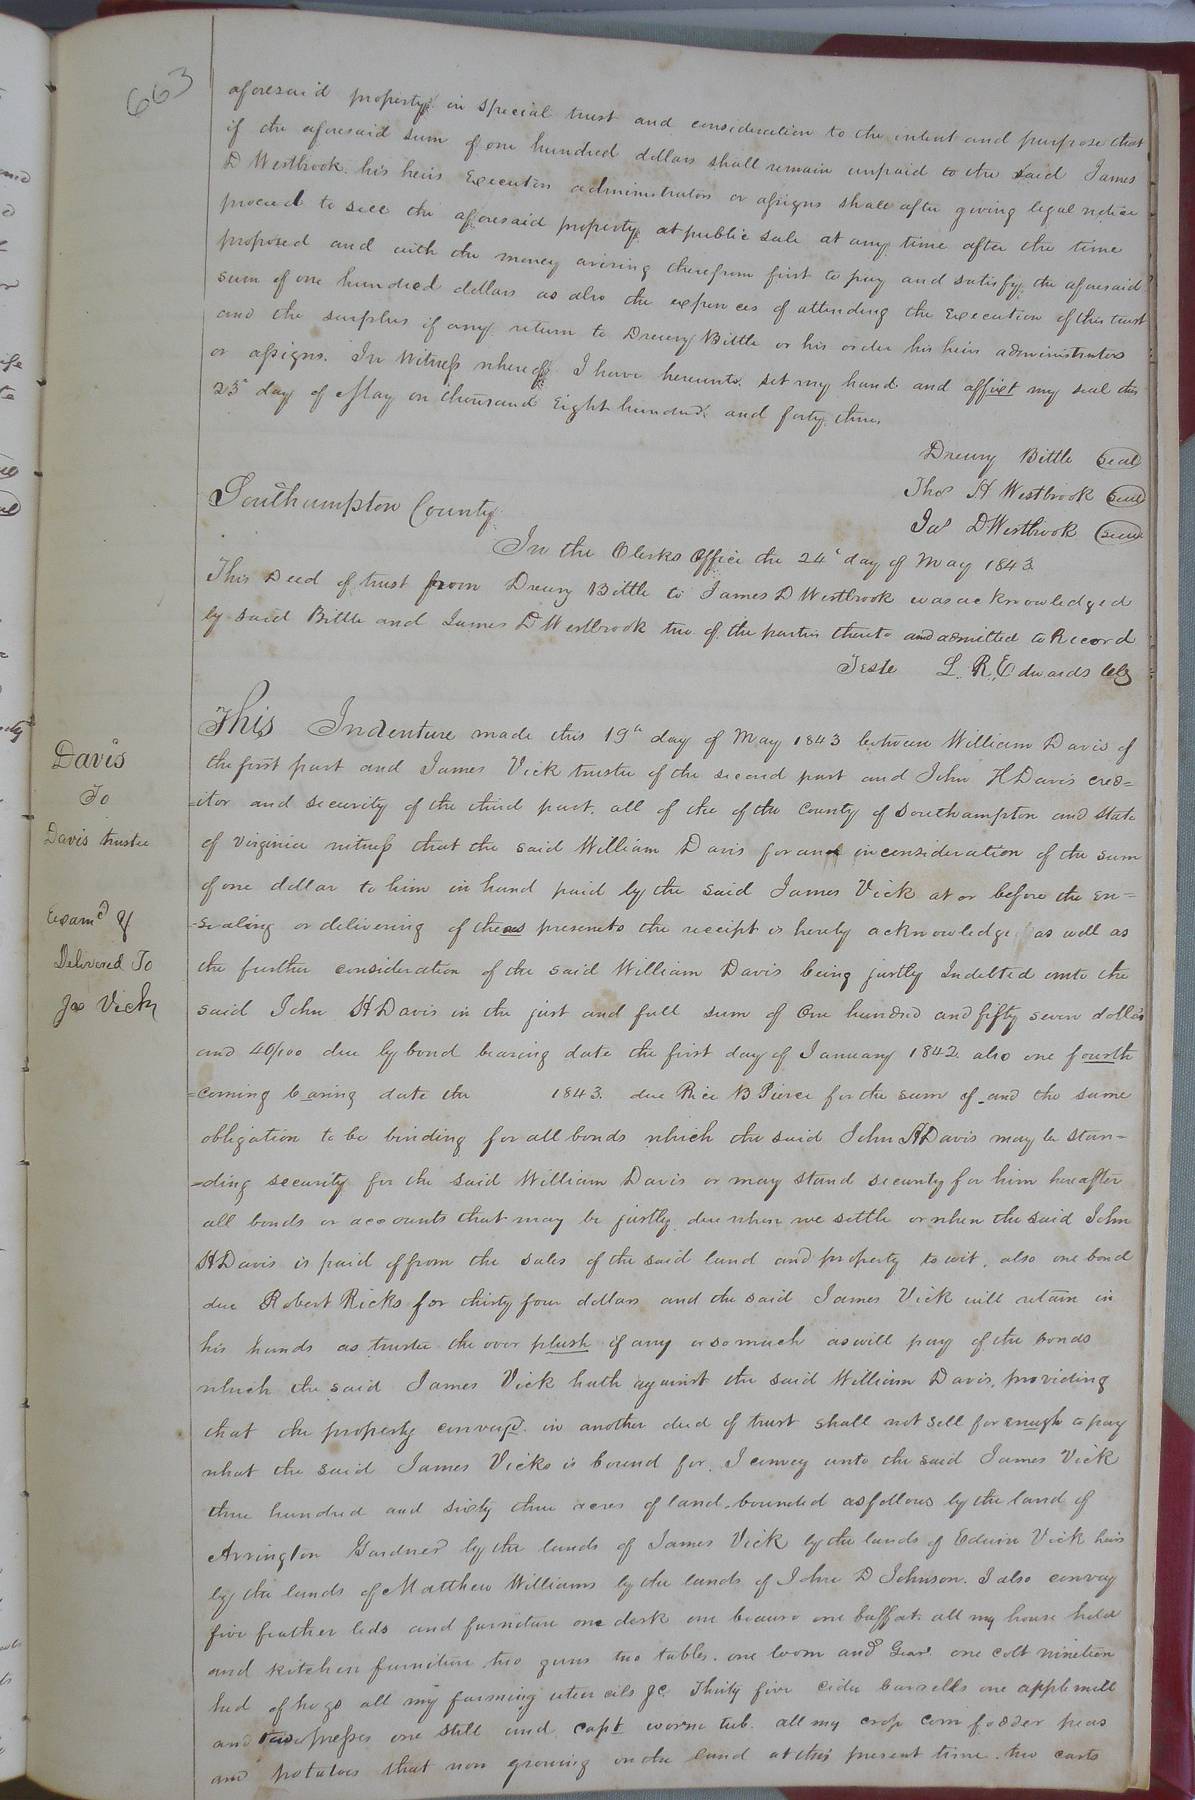 663
aforesaid property in special trust and consideration to the intent and purpose that
if the aforesaid sum of one hundred dollars shall remain unpaid to the said James
D Westbrook his heirs Executors administrators or assigns shall after giving legal notice
proceed to sell the aforesaid property at public sale at any time after the time
proposed and with the money arising therefrom first to pay and satisfy the aforesaid
sum of one hundred dollars as also the expences of attending the Execution of this trust
and the surplus if any return to Drewry Bittle or his order his heirs administrators
or assigns. In Witness whereof I have hereunto set my hand and affixt my seal this
23d day of May on thousand Eight hundred and forty three
Drewry Bittle seal
Thos H Westbrook seal
Jas D Westbrook seal
Southampton County
In the Clerks Office the 24th day of May 1843
This Deed of trust from Drewry Bittle to James D Westbrook was acknowledged
by said Bittle and James D Westbrook two of the parties thereto and admitted to Record
Teste L. R. Edwards Clk
Davis
To
Davis trustee
Examd &
Delivered To
Js Vick
This Indenture made this 19th day of May 1843 between William Davis of
the first part and James Vick trustee of the second part and John H Davis cred=
=itor and security of the third part. all of the of the County of Southampton and State
of Virginia witness that the said William Davis for and in consideration of the sum
of one dollar to him in hand paid by the said James Vick at or before the en=
=sealing or delivering of these presents the receipt is hereby acknowledge as well as
the further consideration of the said William Davis being justly Indebted unto the
said John H Davis in the just and full sum of One hundred and fifty seven dollars
and 40/100 due by bond bearing date the first day of January 1842 also one fourth
=coming baring date the 1843. due Rice B Pierce for the sum of and the same
obligation to be binding for all bonds which the said John H Davis may be stan=
=ding security for the said William Davis or may stand security for him hereafter
all bonds or accounts that may be justly due when we settle or when the said John
H Davis is paid off from the sales of the said land and property to wit. also one bond
due Robert Ricks for thirty four dollars and the said James Vick will retain in
his hands as trustee the over plush if any or so much as will pay of the bonds
which the said James Vick hath against the said William Davis, providing
that the property conveyd in another deed of trust shall not sell for enugh to pay
what the said James Vicks is bound for. I convey unto the said James Vick
three hundred and sixty three acres of land bounded as follows by the land of
Arrington Gardner by the lands of James Vick by the lands of Edwin Vick heirs
by the lands of Matthew Williams by the lands of John D Johnson. I also convey
five feather beds and furniture one desk one beauro one buffat all my house hold
and kitchen furniture two guns two tables. one loom and Gear one colt nineteen
hed of hogs all my farming utencils &c Thirty five cider barrells one applemill
and two presses one still and capt worm tub. all my crop corn fodder peas
and potatoes that now growing on the land at this present time. two carts